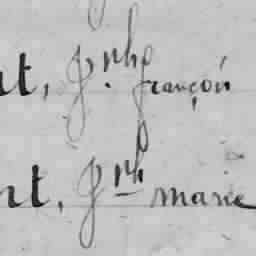 nt, Jph françois
nt, Jph marie